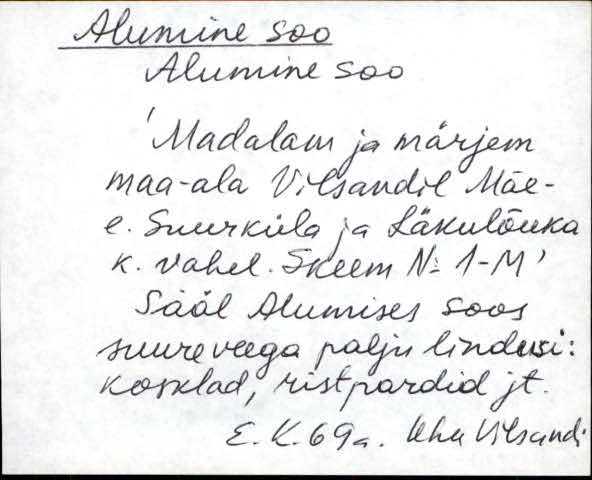 Alumine soo
Alumine soo
'Madalam ja märjem
maa-ala Vilsandil Mäe-
e. Suurküla ja Läkulõuka
k. vahel. Skeem № 1-M'
Sääl Alumises soos
suure veega palju lindusi:
kosklad, ristpardid jt.
E. K. 69 a. Kha Vilsandi